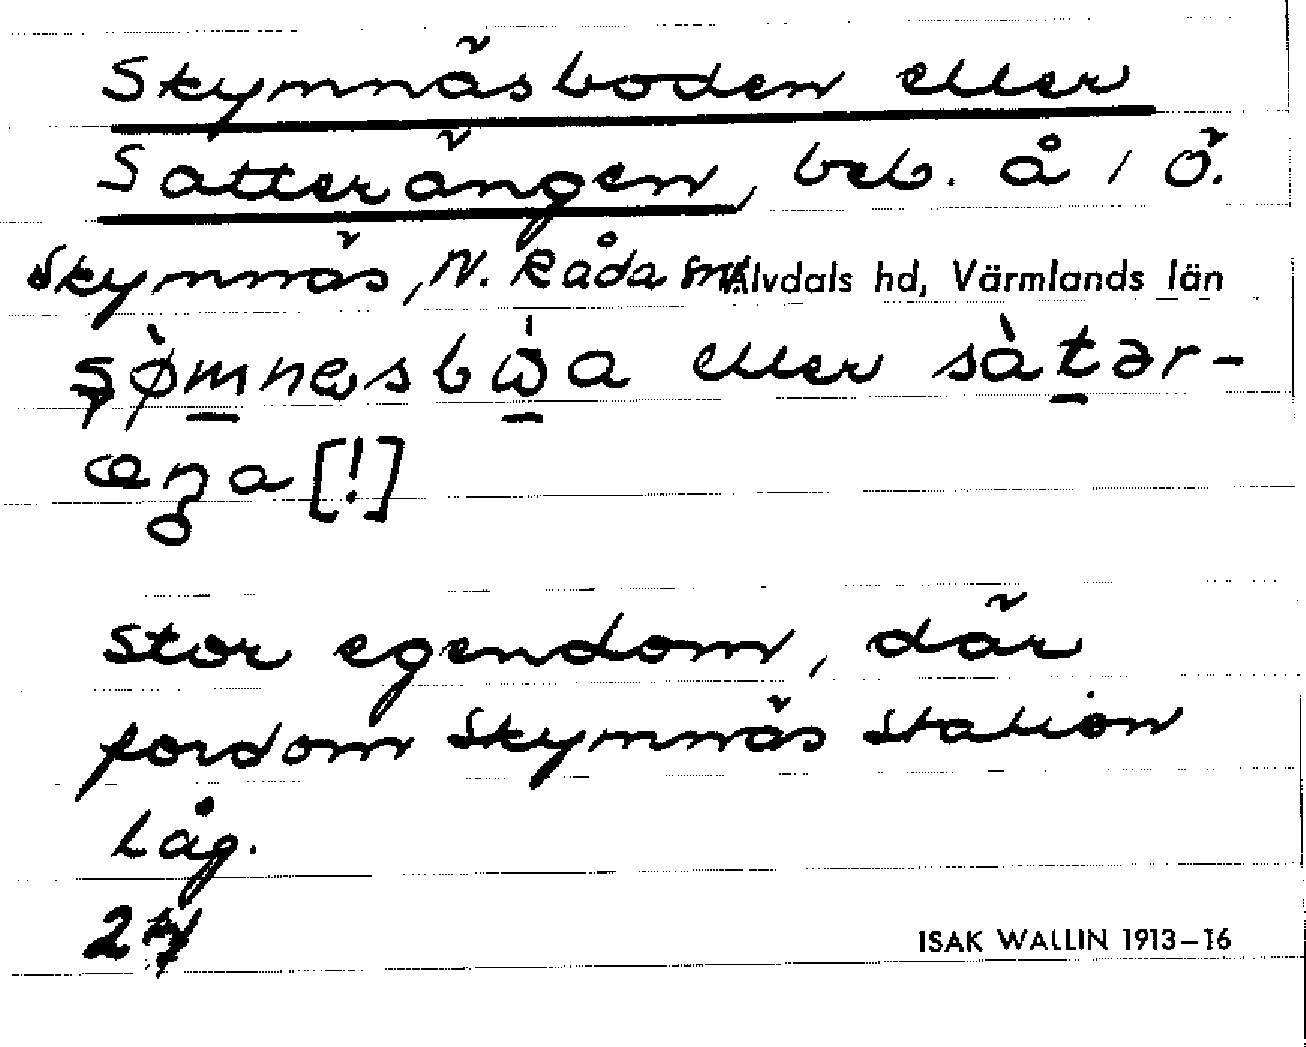 Skymnäsboden eller
Satterängen, beb. å 1 Ö.
Skymnäs, N. Råda sn Älvdals hd, Värmlands län
eller
[!]
stor egendom, där
fordom Skymnäs station
låg.
ISAK WALLIN 1913–16